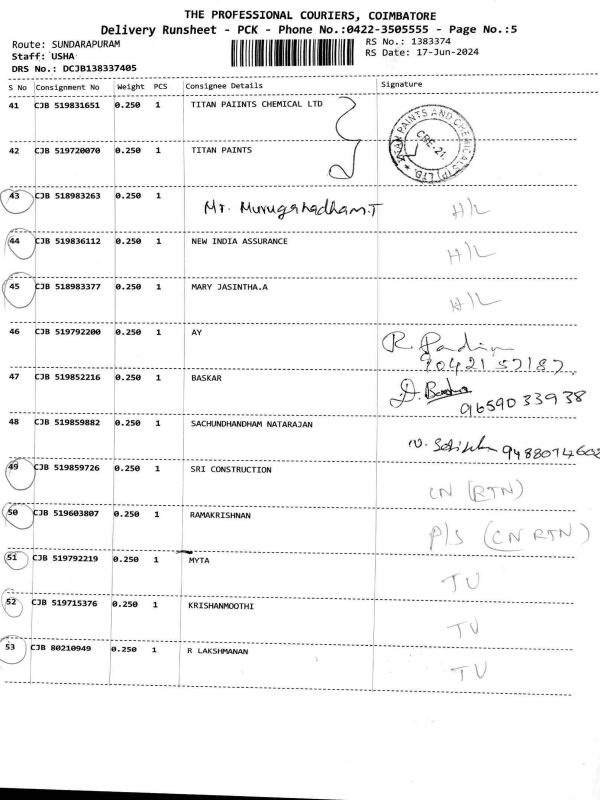 THE PROFESSIONAL COURIERS, COIMBATORE
Delivery Runsheet - PCK - Phone No.:0422-3505555 - Page No.:5
Route: SUNDARAPURAM
RS No.: 1383374
Staff: USHA
RS Date: 17-Jun-2024
DRS No.: DCJB138337405
S No Consignment No Weight PCS Consignee Details Signature
41 CJB 519831651 0.250 1 TITAN PAIINTS CHEMICAL LTD
TITAN PAINTS AND CHEMICALS (P) LTD. ★
CBE-21.
42 CJB 519720070 0.250 1 TITAN PAINTS
43 CJB 518983263 0.250 1 Mr. Murugahadham.T H/L
44 CJB 519836112 0.250 1 NEW INDIA ASSURANCE H/L
45 CJB 518983377 0.250 1 MARY JASINTHA.A H/L
46 CJB 519792200 0.250 1 AY R.
47 CJB 519852216 0.250 1 BASKAR D.
9659033938
48 CJB 519859882 0.250 1 SACHUNDHANDHAM NATARAJAN N.
49 CJB 519859726 0.250 1 SRI CONSTRUCTION CN (RTN)
50 CJB 519603807 0.250 1 RAMAKRISHNAN P/S (CN RTN)
51 CJB 519792219 0.250 1 MYTA TU
52 CJB 519715376 0.250 1 KRISHANMOOTHI TU
53 CJB 80210949 0.250 1 R LAKSHMANAN TU